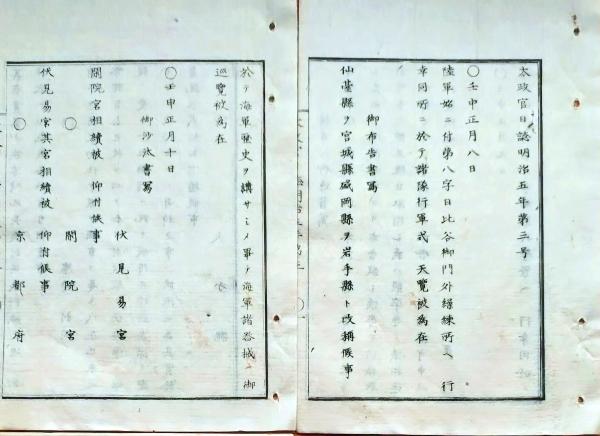 太政官日誌明治五年第三号
〇壬申正月八日
陸軍始ニ付第八字日比谷御門外繰練所ヘ 行
幸同所ニ於テ諸隊行軍式 天覧被為在
御布告書写
仙䑓縣ヲ宮城縣盛岡縣ヲ岩手縣ト改稱候事
於テ海軍歴史ヲ講サシメ畢テ海軍諸器械ヲ御
巡覧被為在
〇壬申正月十日
御沙汰書写
伏見易宮
閑院宮相續被 仰付候事
〇 閑院宮
伏見易宮其宮相續被 仰付候事
京都府